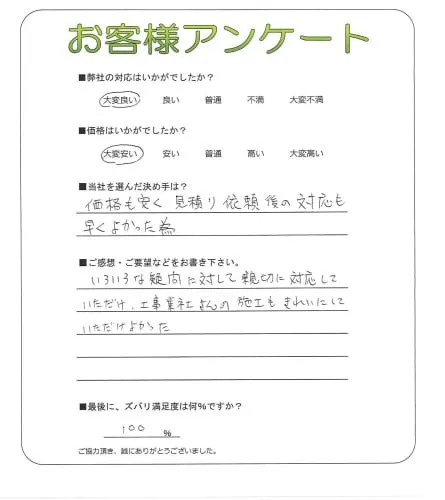 お客様アンケート
■弊社の対応はいかがでしたか？
大変良い 良い 普通 不満 大変不満
■価格はいかがでしたか？
大変安い 安い 普通 高い 大変高い
■当社を選んだ決め手は？
価格も安く 見積り依頼後の対応も
早くよかった為
■ご感想・ご要望などをお書き下さい。
いろいろな疑問に対して親切に対応して
いただけ、工事業社さんの施工もきれいにして
いただけよかった
■最後に、ズバリ満足度は何%ですか？
100 %
ご協力頂き、誠にありがとうございました。